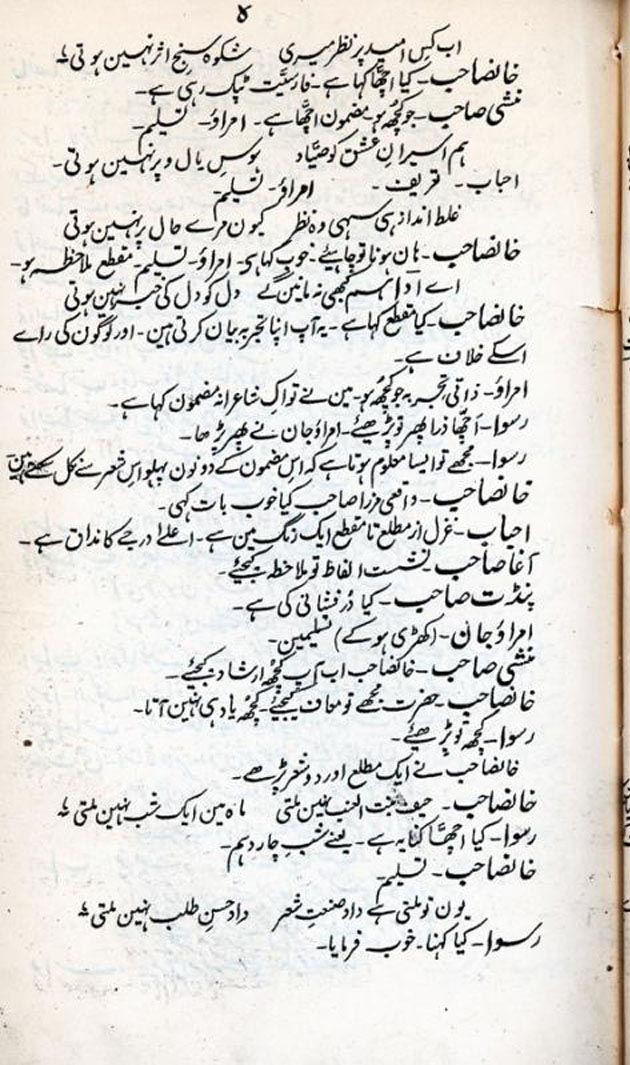 ۸
اب کس امید پر نظر میری شکوہ سنج اثر نہین ہوتی
خانصاحب۔ کیا اچھا کہا ہے۔ فارسیّت ٹپک رہی ہے۔
منشی صاحب۔ جو کچھ ہو۔ مضمون اچھا ہے۔ امراؤ۔ تسلیم۔
ہم اسیران عشق کو صیّاد ہوس بال و پر نہین ہوتی۔
احباب۔ تعریف۔ امراؤ۔ تسلیم۔
غلط انداز ہی سہی وہ نظر کیون مرے حال پر نہین ہوتی
خانصاحب۔ ہان ہونا تو چاہیئے۔ خوب کہا ہی۔ امراؤ۔ تسلیم۔ مقطع ملاحظہ ہو۔
اے ادا ہم کبھی نہ مانین گے دل کو دل کی خبر نہین ہوتی
خانصاحب۔ کیا مقطع کہا ہے۔ یہ آپ اپنا تجربہ بیان کرتی ہین۔ اور لوگون کی راے
اسکے خلاف ہے۔
امراؤ۔ ذاتی تجربہ جو کچھ ہو۔ مین نے تو اک شاعرانہ مضمون کہا ہے۔
رسوا۔ اچھا ذرا پھر تو پڑھیئے۔ امراؤ جان نے پھر پڑھا۔
رسوا۔ مجھے تو ایسا معلوم ہوتا ہے کہ اس مضمون کے دونون پہلو اس شعر سے نکل سکتے ہین
خانصاحب۔ واقعی مرزا صاحب کیا خوب بات کہی۔
احباب۔ غزل از مطلع تا مقطع ایک رنگ مین ہے۔ اعلےٰ درجے کا مذاق ہے۔
آغا صاحب۔ نشست الفاظ تو ملاحظہ کیجئے۔
پنڈت صاحب۔ کیا دُر فشانی کی ہے۔
امراؤ جان۔ (کھڑی ہو کے) تسلیمین۔
منشی صاحب۔ خانصاحب اب آپ کچھ ارشاد کیجئے۔
خانصاحب۔ حضرت مجھے تو معاف کیجیئے۔ کچھ یاد ہی نہین آتا۔
رسوا۔ کچھ تو پڑھیئے۔
خانصاحب نے ایک مطلع اور دو شعر پڑھے۔
خانصاحب۔ حیف بنت العنب نہین ملتی ماہ مین ایک شب نہین ملتی
رسوا۔ کیا اچھا کنایہ ہے۔ یعنے شب چار دہم۔
خانصاحب۔ تسلیم
یون تو ملتی ہے داد صنعت شعر داد حسن طلب نہین ملتی
رسوا۔ کیا کہنا۔ خوب فرمایا۔